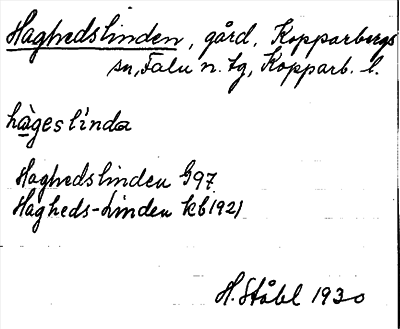 Haghedslinden, gård, Kopparbergs
sn, Falu n. tg, Kopparb. l.
hàgeslinda
Haghedslinden G97
Hagheds-Linden kb1921
H. Ståhl 1930